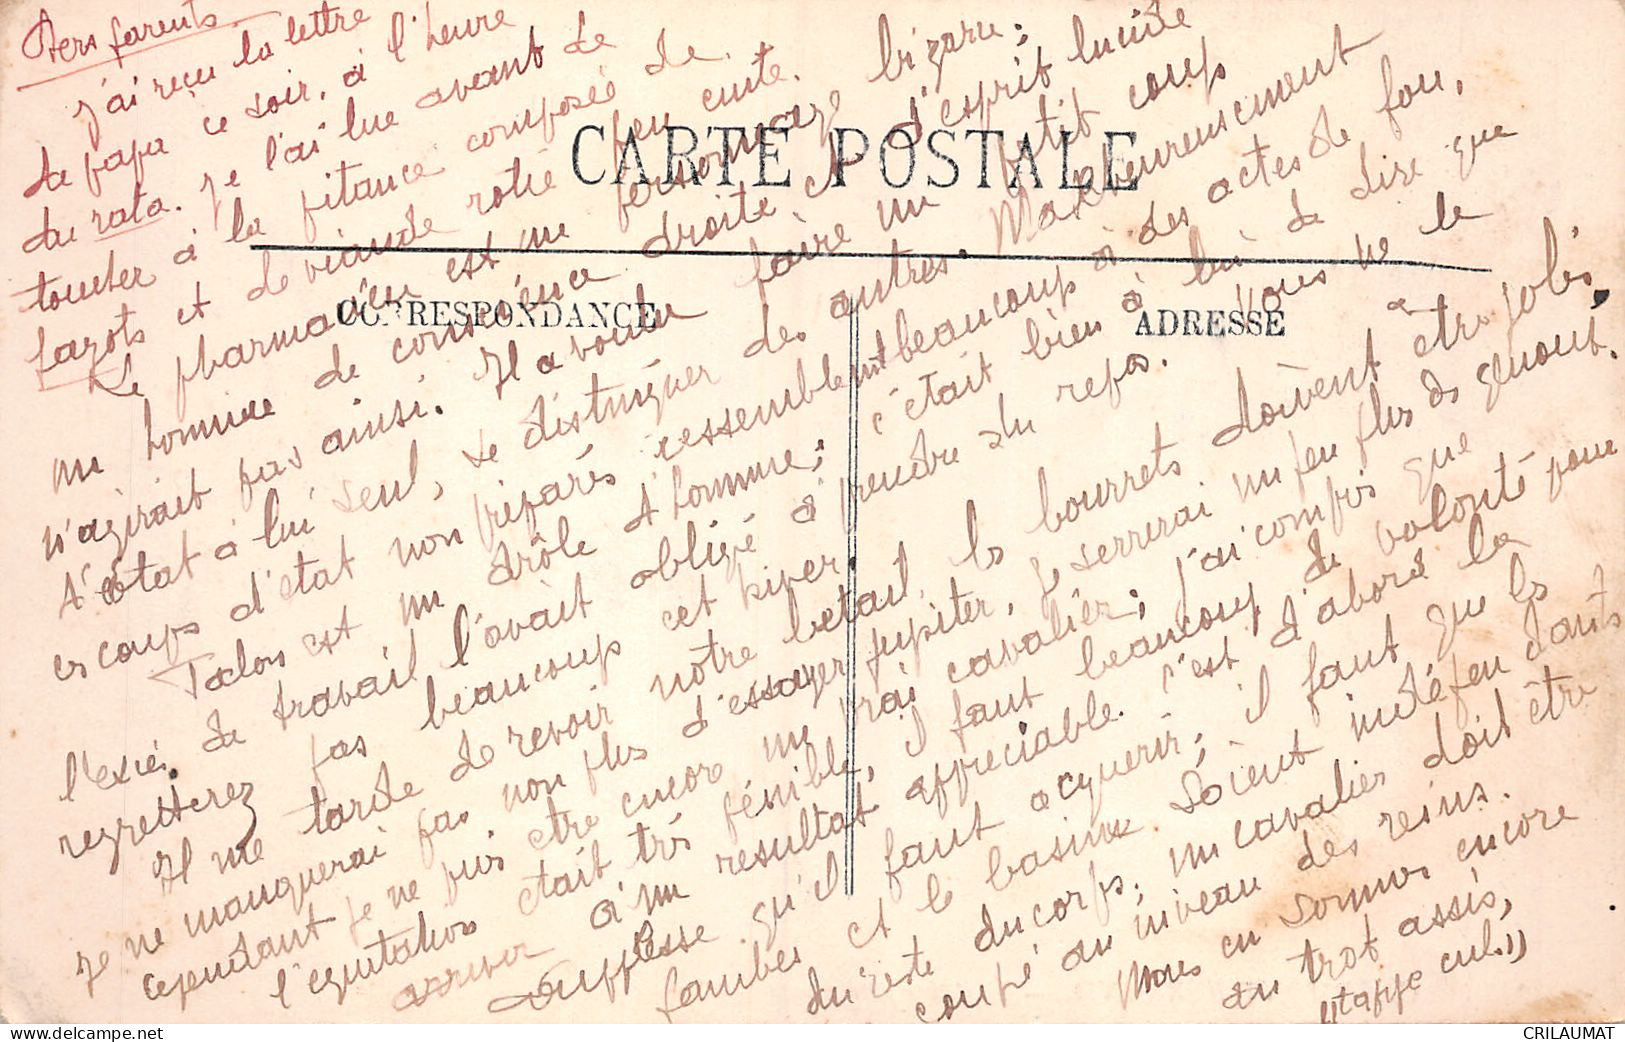 CARTE POSTALE
CORRESPONDANCE
ADRESSE
Chers parents
J'ai reçu la lettre
de papa ce soir, à l'heure
du rata. Je l'ai lue avant de
toucher à la pitance composée de
fayots et de viande rotie peu cuite.
Le pharmacien est un personnage bizarre;
un homme de conscience droite et d'esprit lucide
n'agirait pas ainsi. Il a voulu faire un petit coup
d'état à lui seul, se distinguer des autres. Malheureusement
ces coups d'état non préparés ressemblent beaucoup à des actes de fou,
Talon est un drôle d'homme; c'était bien à lui de dire que
l'excès de travail l'avait obligé à prendre du repos. Vous ne le
regretterez pas beaucoup cet hiver.
Il me tarde de revoir notre betail, les bourrets doivent être jolis,
Je ne manquerai pas non plus d'essayer Jupiter, je serrerai un peu plus de genout.
cependant je ne puis etre encore un vrai cavalier; j'ai compris que
l'equitation etait très pénible, il faut beaucoup de volonté pour
arriver à un resultat appreciable. C'est d'abord la
souplesse qu'il faut acquerir; il faut que les
jambes et le bassin soient indéfendants
du reste du corps; un cavalier doit être
coupé au niveau des reins.
Nous en sommes encore
au trot assis,
"tappe cul"
CRILAUMAT